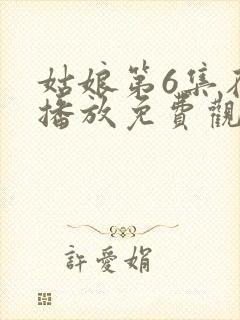 姑娘第6集在
播放免費觀
許愛娟